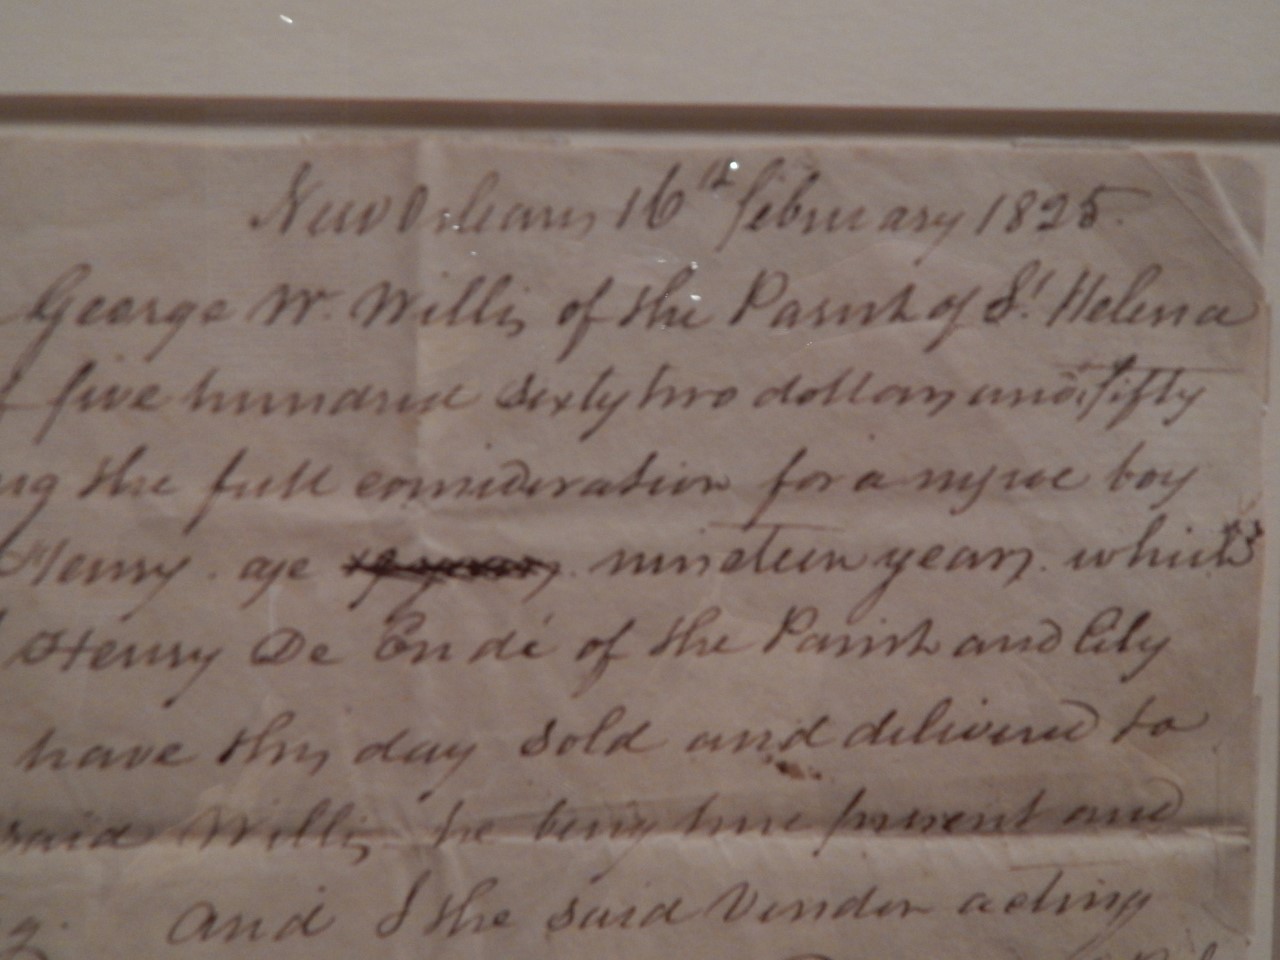 New Orleans, 16th february 1825.
George W. Willis of the Parish of St. Helena
five hundred sixty two dollars and fifty
the full consideration for a negroe boy
Henry. age nineteen years. which
Henry De Endé of the Parish and City
have this day sold and delivered to
said Willis, he being here present and
And I the said Vendor acting